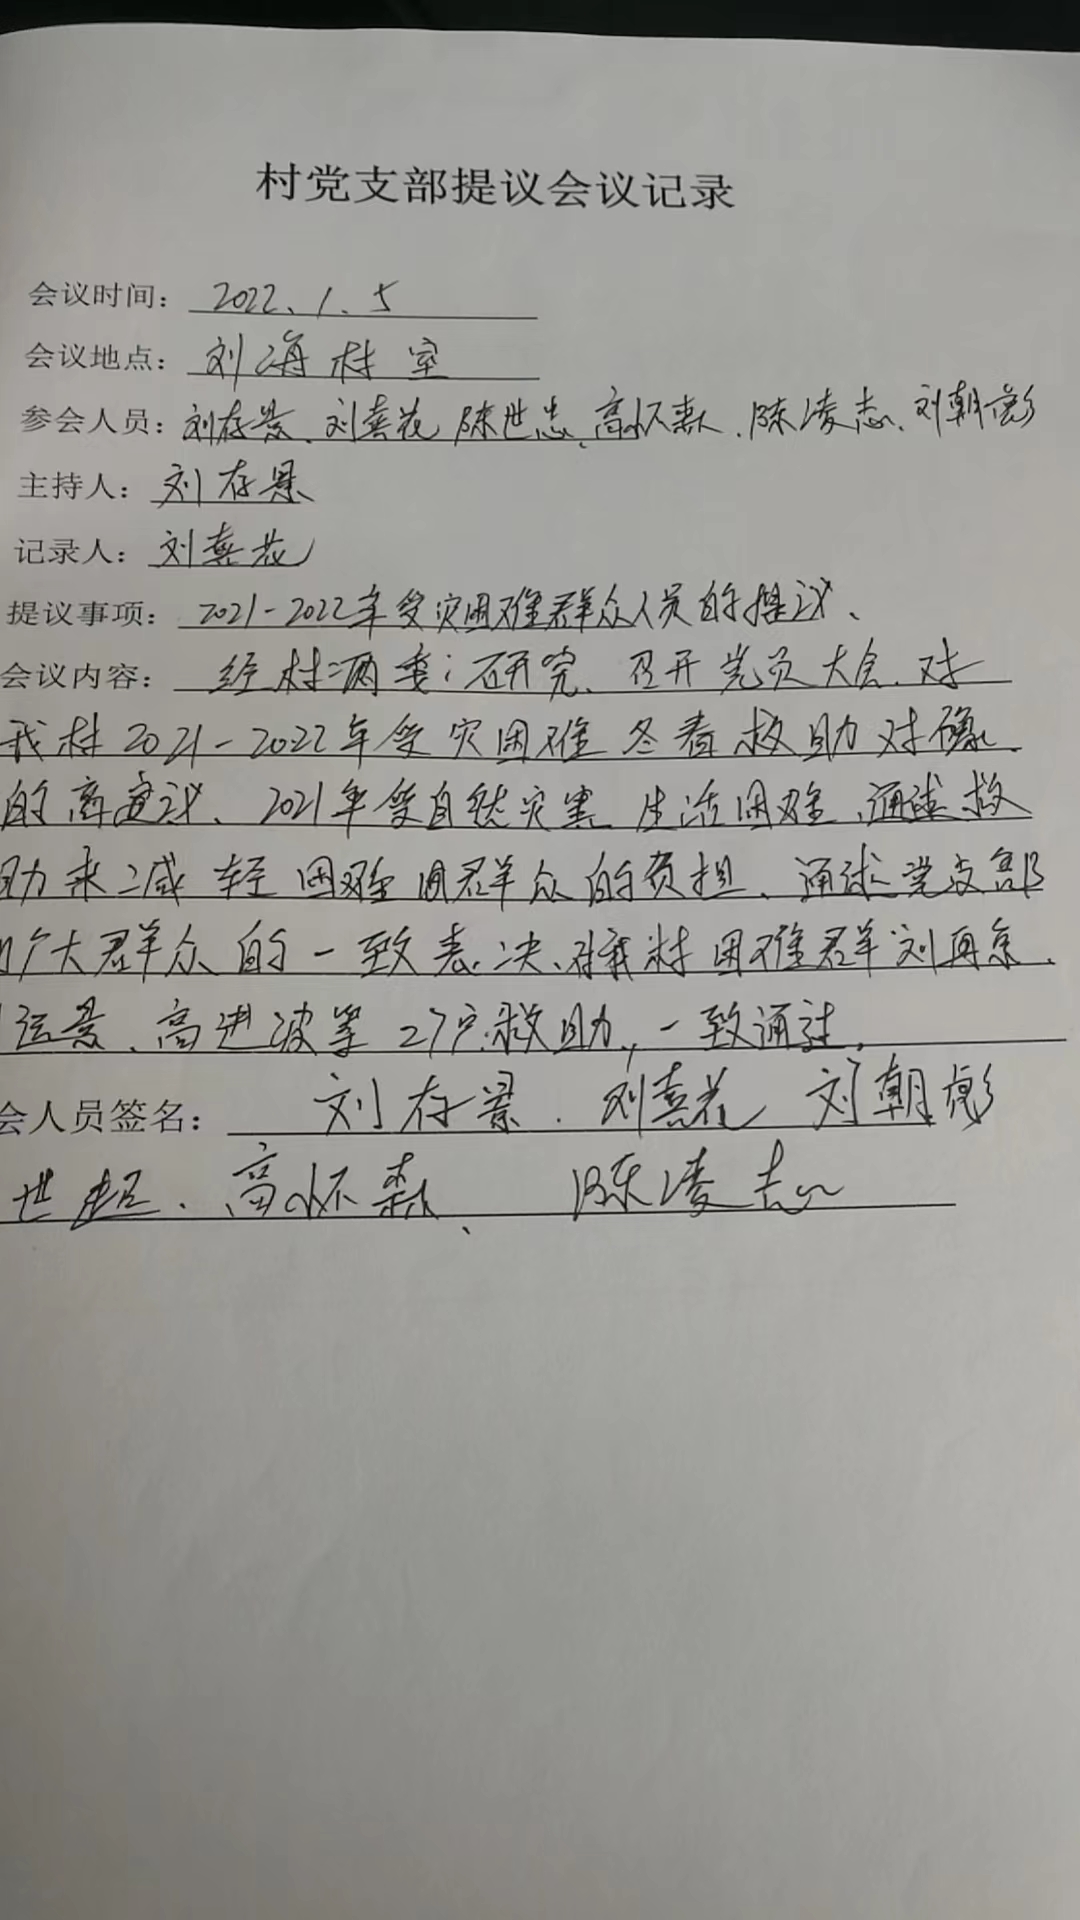 村党支部提议会议记录
会议时间: 2022.1.5
会议地点: 刘海村室
参会人员: 刘存景、刘熹花 陈世忠、高怀森、陈凌志、刘朝彪
主持人: 刘存景
记录人: 刘熹花
提议事项: 2021-2022年受灾困难群众人员的提议、
会议内容: 经村两委:研究、召开党员大会、对
我村2021-2022年受灾困难 冬春救助对
的商议、2021年受自然灾害 生活困难、通过救
助来减轻困难 群众的负担、通过党支部
广大群众的一致表决、对我村困难群 刘再京、
运景、高进波等27户救助,一致通过,
会人员签名: 刘存景、刘熹花 刘朝彪
世超、高怀森、陈凌志